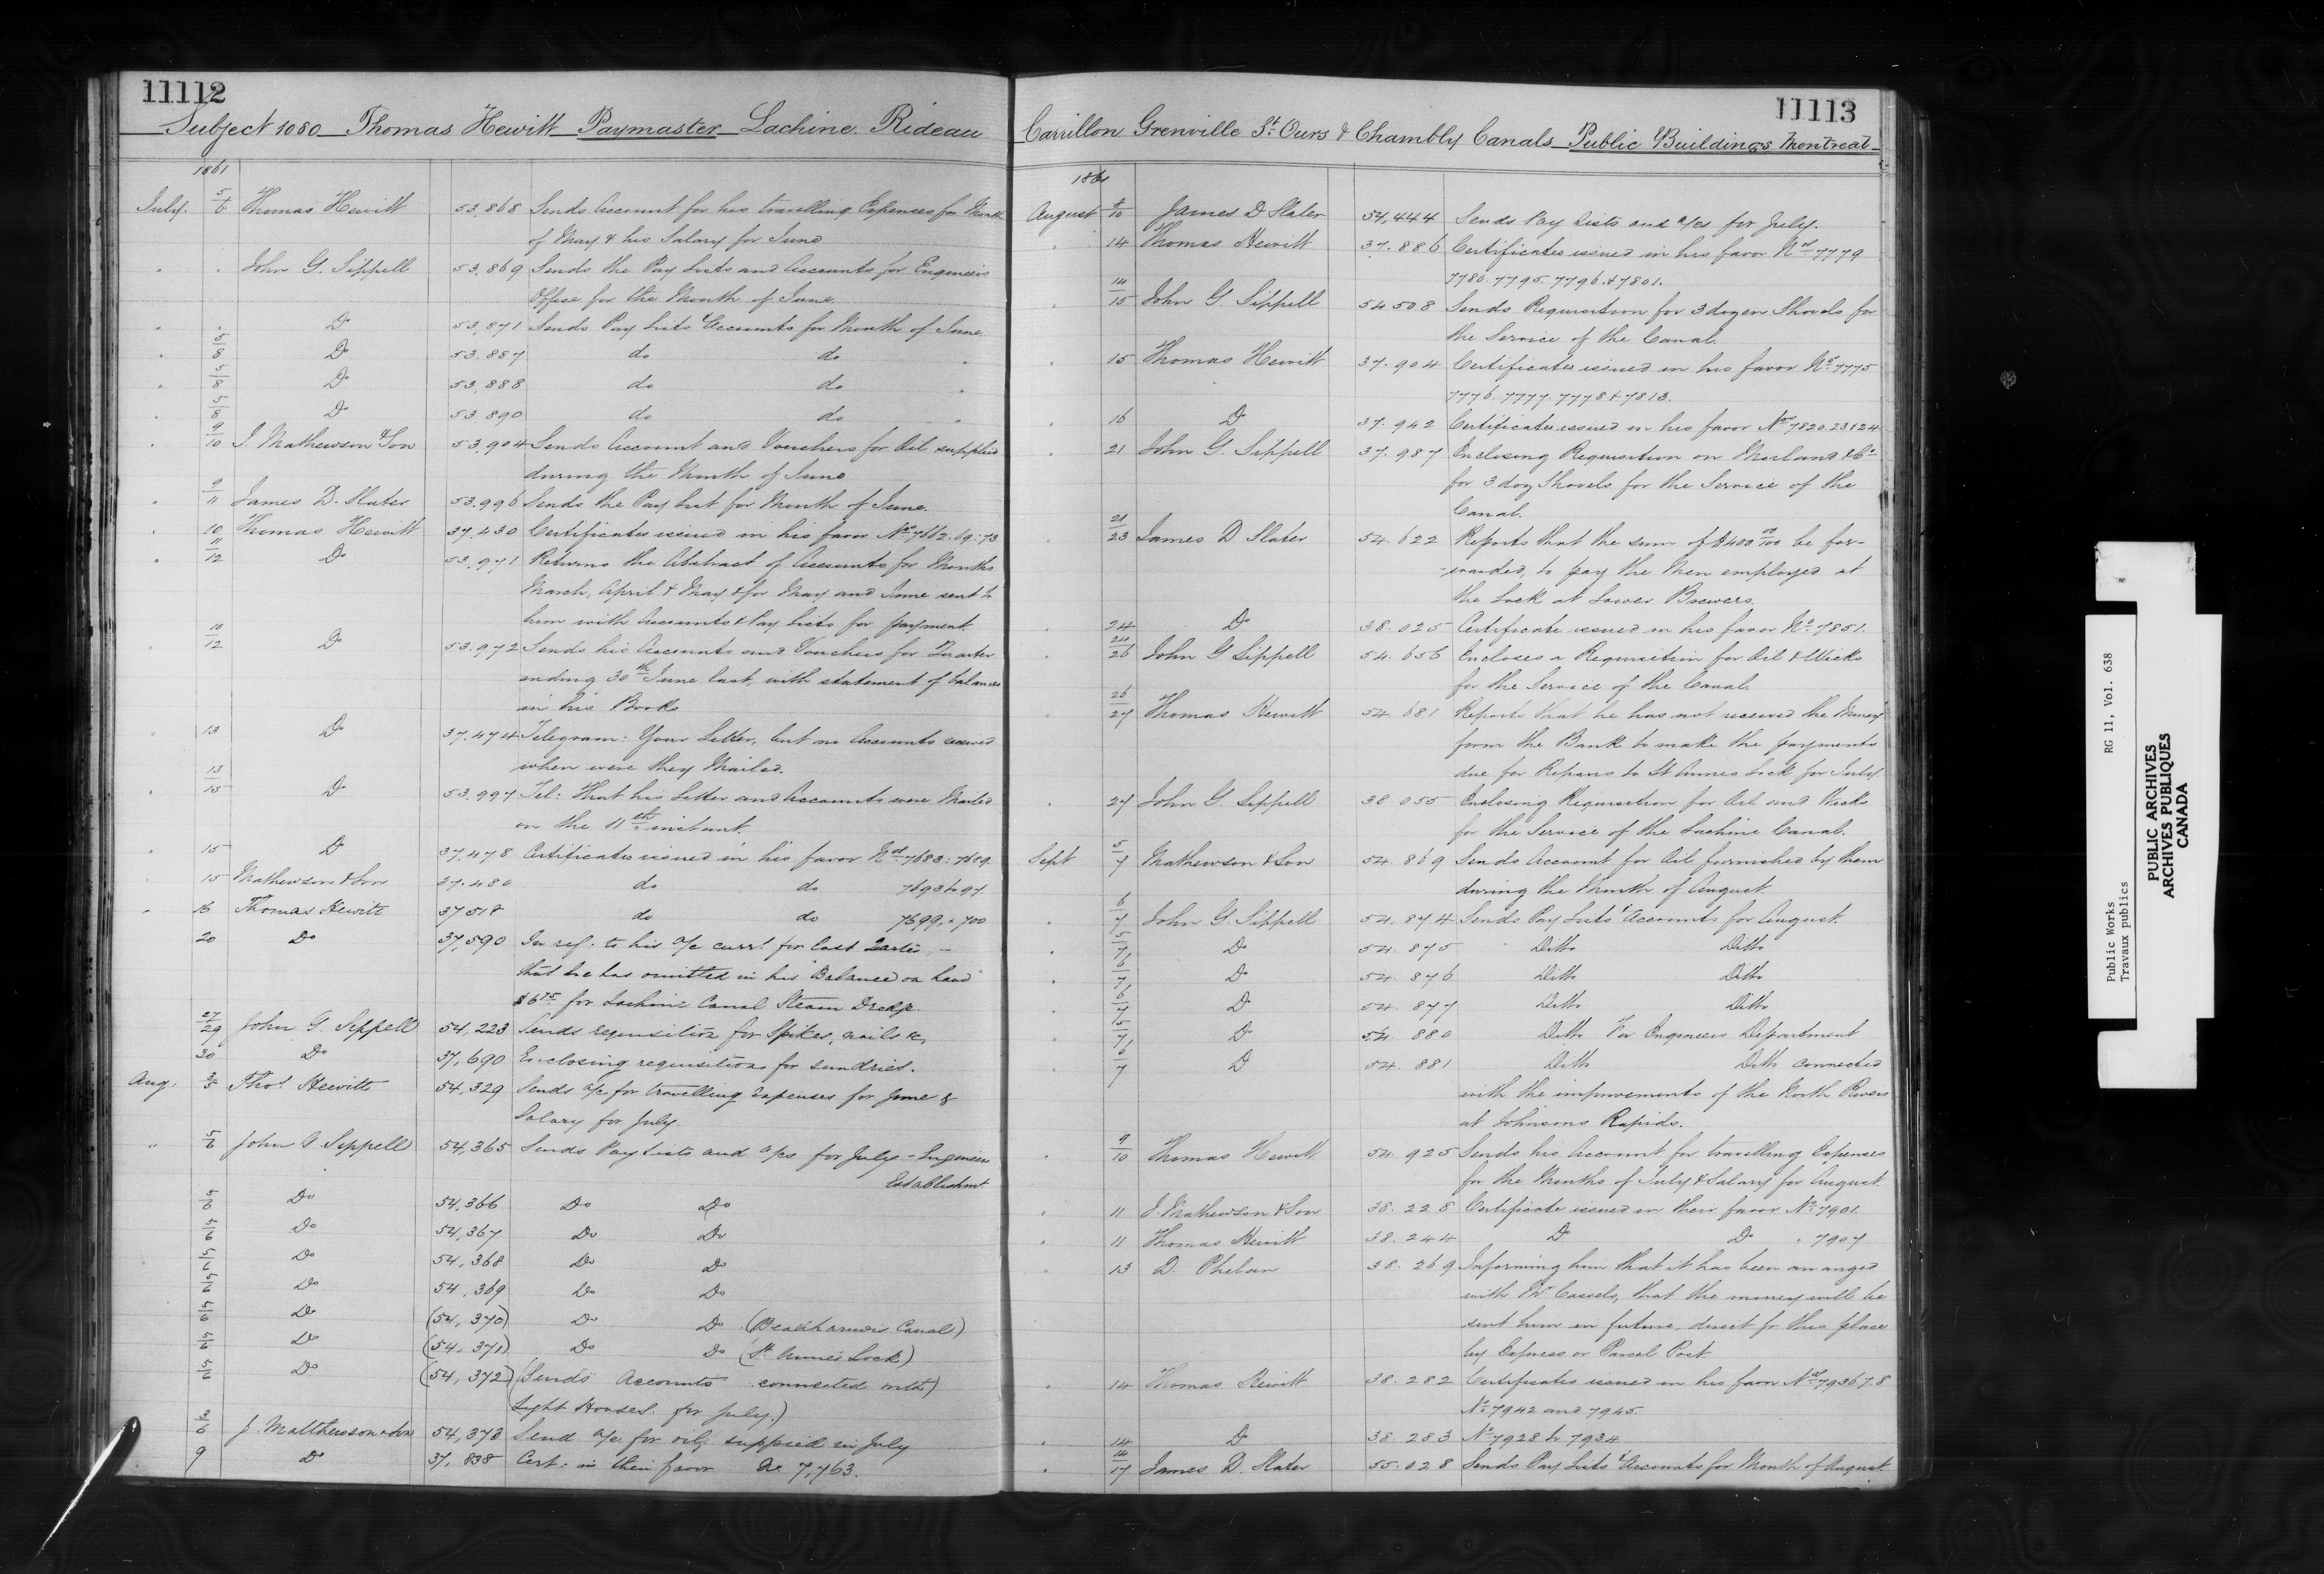 11112
Subject 1080 Thomas Hewitt Paymaster Lachine Rideau
1861
July. 5/6 Thomas Hewitt 53,868 Sends Account for his travelling Expenses for Month
of May & his Salary for June
" " John G. Sippell 53,869 Sends the Pay Lists and Accounts for Engineers
Office for the Month of June
" " Do 53,871 Sends Pay Lists & Accounts for Month of June
" 5/8 Do 53,887 do do "
" 5/8 Do 53,888 do do "
" 5/8 Do 53,890 do do "
" 9/10 J. Mathewson & Son 53,904 Sends Account and Vouchers for Oil supplied
during the Month of June
" 9/11 James D. Slater 53,996 Sends the Pay List for Month of June.
" 10 Thomas Hewitt 37,430 Certificates issued in his favor Nos 7662.69:73
" 11/12 Do 53,971 Returns the Abstract of Accounts for Months
March, April & May & for May and June sent to
him with Accounts & Pay Lists for payment.
" 10/12 Do 53,972 Sends his Accounts and Vouchers for Quarter
ending 30th June last, with statement of balances
in his Books
" 13 Do 37,474 Telegram: Your Letter, but no Accounts received
when were they Mailed.
" 13/15 Do 53,997 Tel: That his Letter and Accounts were Mailed
on the 11th instant.
" 15 Do 37,478 Certificates issued in his favor Nos 7683:7689.
" 15 Mathewson & Son 37.480 do do 7693 to 97.
" 16 Thomas Hewitt 37518 do do 7699, " 700
20 Do 37,590 In ref: to his a/c currt for last Quarter -
that he has omitted in his "Balance on hand"
$6 75 for Lachine Canal Steam Dredge.
27/29 John G. Sippell 54,223 Sends requisition for Spikes, nails &c,
30 Do 37,690 Enclosing requisition for sundries.
Aug: 3/5 Thos Hewitt 54,329 Sends a/c for travelling expenses for June &
Salary for July.
" 5/6 John G Sippell 54,365 Sends Pay Lists and a/cs for July - Engineer
Establishmt
5/6 Do 54,366 Do Do
5/6 Do 54,367 Do Do
5/6 Do 54,368 Do Do
5/6 Do 54,369 Do Do
5/6 Do (54,370) Do Do (Beauharnois Canal)
5/6 Do (54,371) Do Do (St Anne's Lock)
5/6 Do (54,372) (Sends Accounts connected with)
Light Houses. for July.)
3/6 J. Matthewson & Son 54,373 Send a/c for oil, suppied in July
9 Do 37,838 Cert: in their favor No 7,763.
11113
Carrillon Grenville St. Ours & Chambly Canals Public Buildings Montreal
1861
August 8/10 James D Slater 54,444 Sends Pay Lists and a/cs for July.
" 14 Thomas Hewitt 37.886 Certificates issued in his favor Nos 7779
7780.7795.7796.&7801.
" 14/15 John G. Sippell 54508 Sends Requisition for 3 dozen Shovels for
the Service of the Canal.
" 15 Thomas Hewitt 37.904 Certificates issued in his favor Nos 7775
7776.7777.7778 & 7813.
" 16 Do 37.942 Certificates issued in his favor Nos 7820.23 & 24
" 21 John G. Sippell 37.987 Enclosing Requisition on Morland & Co
for 3 doz Shovels for the Service of the
Canal.
" 21/23 James D Slater 54.622 Reports that the sum of $400 00/100 be for-
-warded, to pay the Men employed at
the Lock at Lower Brewers.
" 24 Do 38.025 Certificate issued in his favor No. 7851.
" 24/26 John G Sippell 54.656 Encloses a Requisition for Oil & Wicks
for the Service of the Canal.
" 26/27 Thomas Hewitt 54.681 Reports that he has not received the Money
from the Bank to make the payments
due for Repairs to St Annes Lock for July
" 27 John G. Sippell 38.055 Enclosing Requisition for Oil and Wicks
for the Service of the Lachine Canal.
Sept 5/7 Mathewson & Son 54.869 Sends Account for Oil furnished by them
during the Month of August.
" 6/7 John G. Sippell 54.874 Sends Pay Lists & Accounts for August.
" 5/7 Do 54.875 Ditto Ditto
" 6/7 Do 54.876 Ditto Ditto
" 6/7 Do 54.877 Ditto Ditto
" 5/7 Do 54.880 Ditto For Engineers Department
" 6/7 Do 54.881 Ditto Ditto connected
with the improvements of the North Rivers
at Johnsons Rapids.
" 9/10 Thomas Hewitt 54.925 Sends his Account for travelling Expenses
for the Months of July & Salary for August.
" 11 J. Mathewson & Son 38.228 Certificate issued in their favor No. 7901.
" 11 Thomas Hewitt 38.244 Do Do " 7907
" 13 D. Phelan 38.269 Informing him that it has been arranged
with Mr Cassels, that the money will be
sent him in future, direct fr this place
by Express or Parcel Post.
" 14 Thomas Hewitt 38.282 Certificates issued in his favor Nos 7936.7.8
No. 7942 and 7945.
" 14 Do 38.283 No. 7928 to 7934
" 14/17 James D. Slater 55.028 Sends Pay Lists & Accounts for Month of August.
Public Works RG 11, Vol. 638
Travaux publics
PUBLIC ARCHIVES
ARCHIVES PUBLIQUES
CANADA